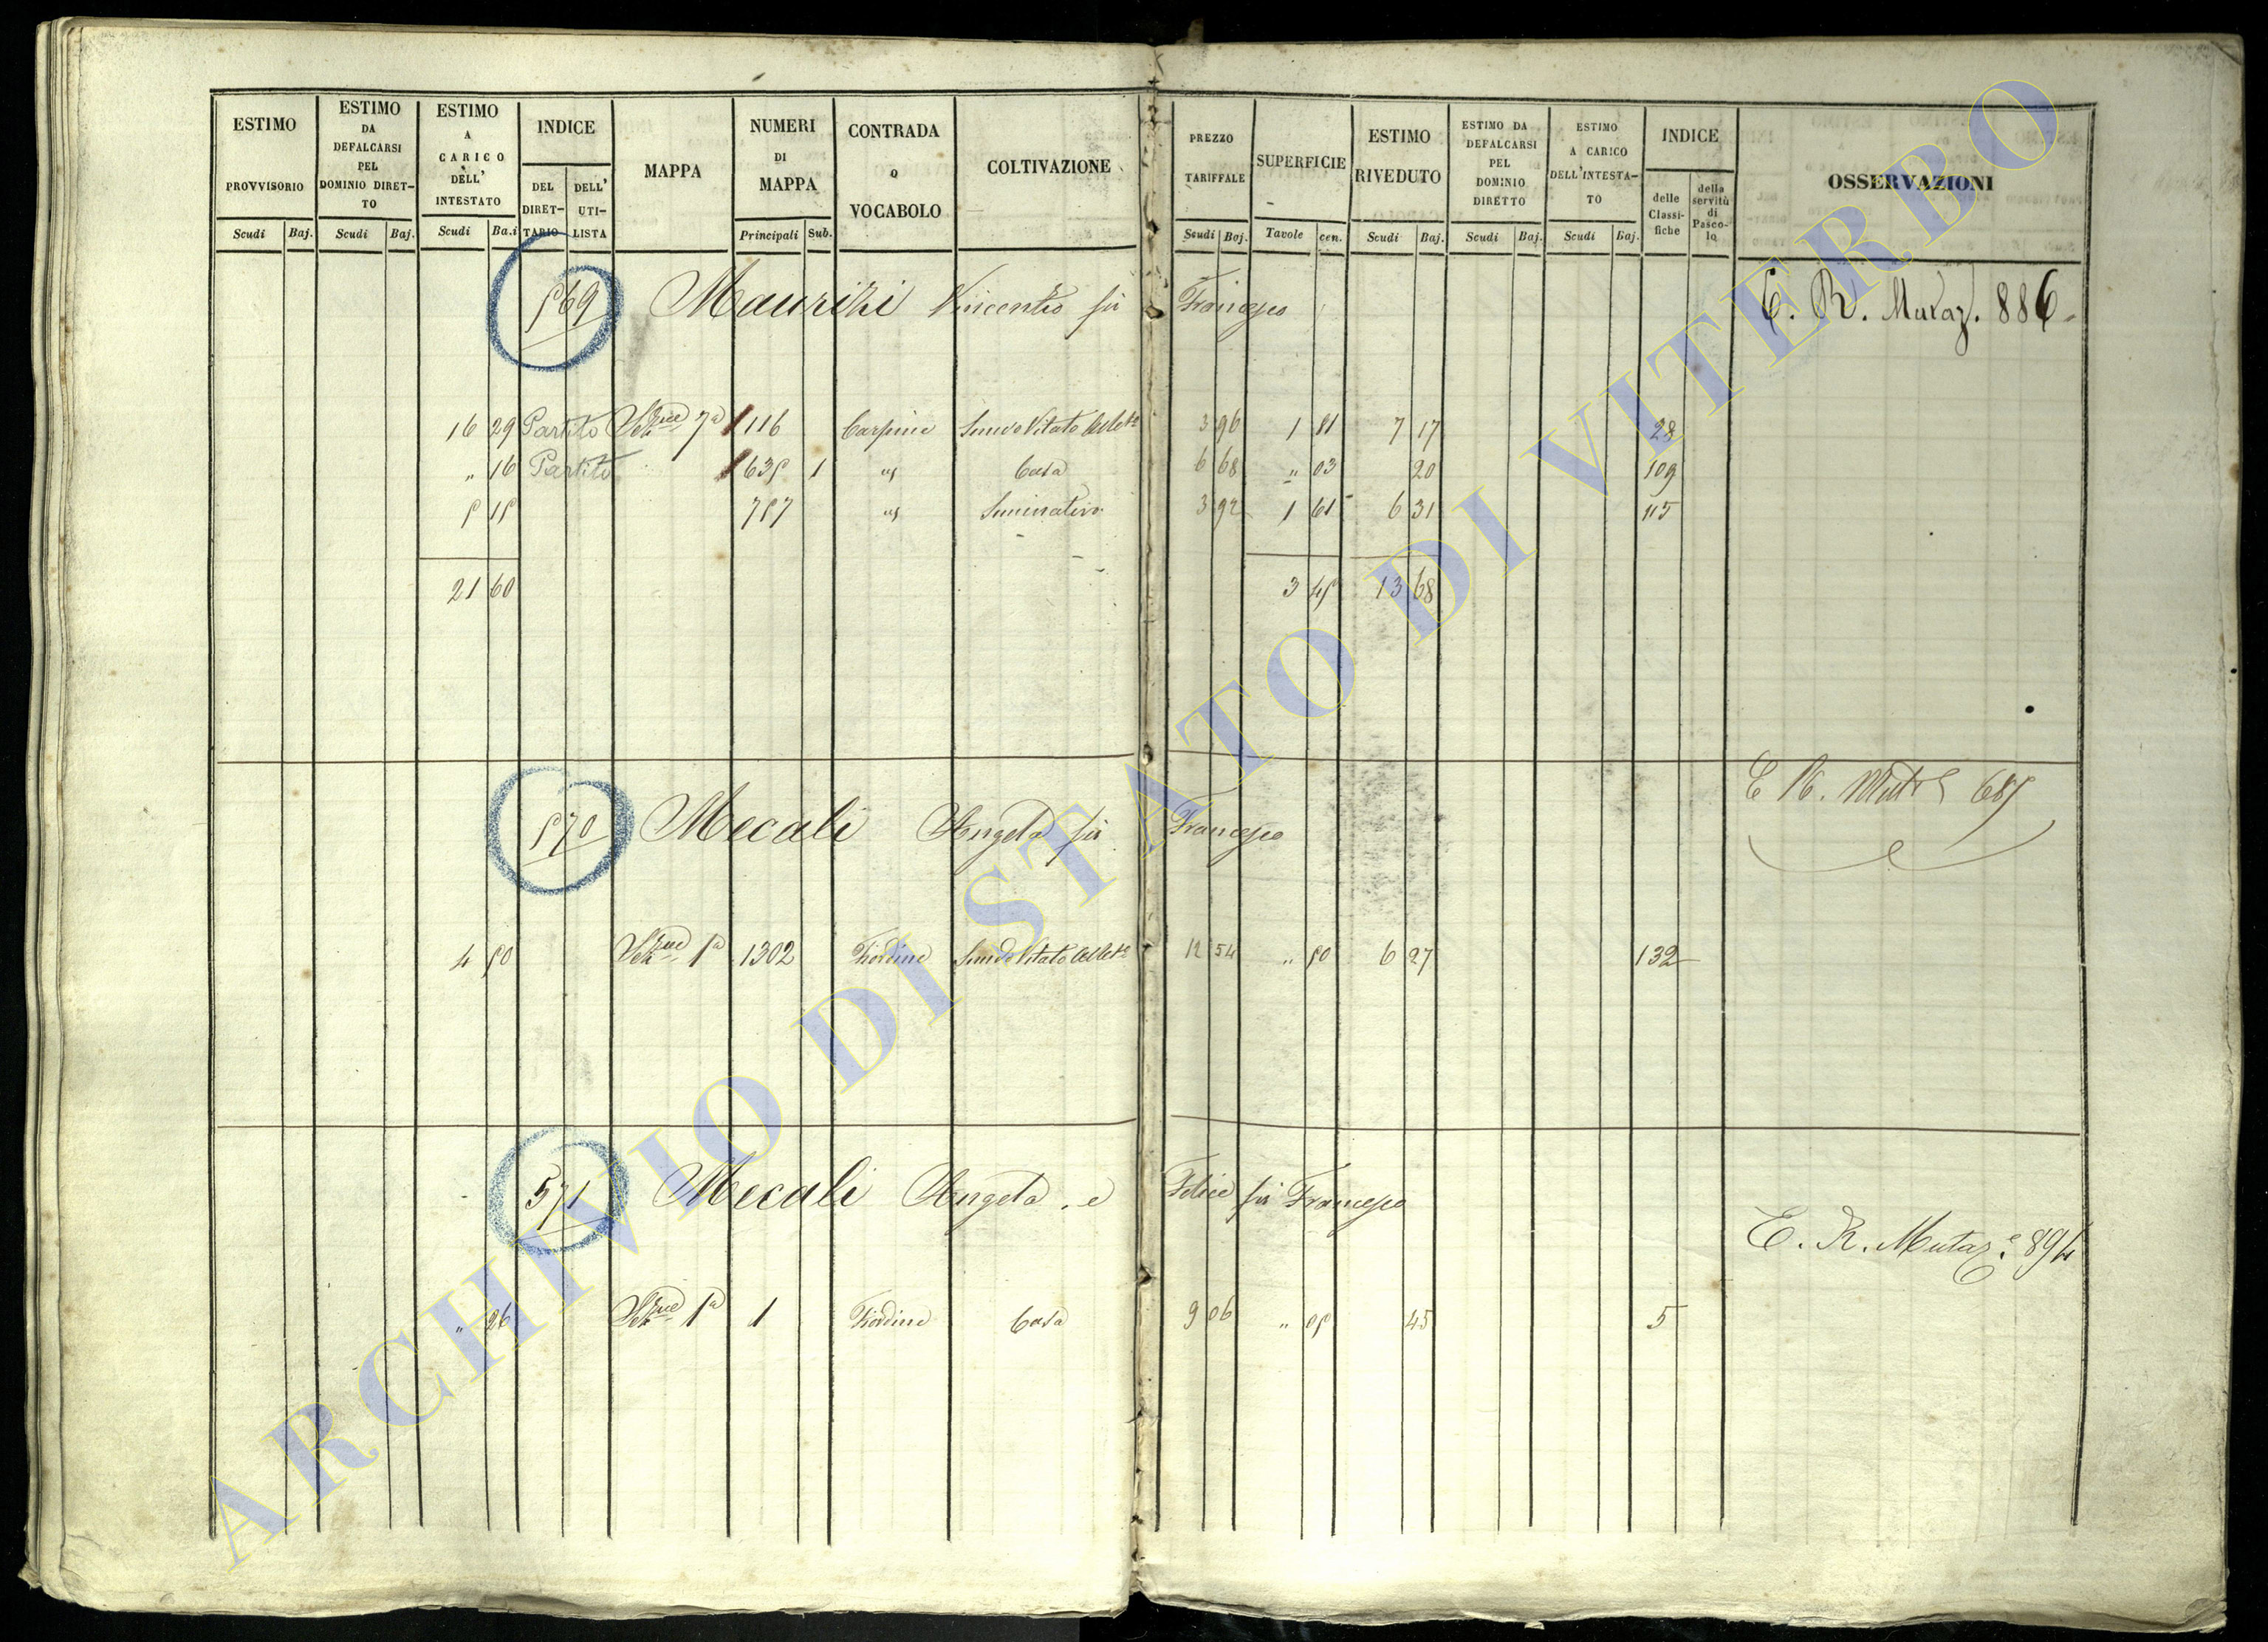 ESTIMO PROVVISORIO Scudi Baj.
ESTIMO DA DEFALCARSI PEL DOMINIO DIRET-TO Scudi Baj.
ESTIMO A CARICO DELL' INTESTATO Scudi Ba.i
INDICE DEL DIRET-TARIO DELL' UTI-LISTA
MAPPA
NUMERI DI MAPPA Principali Sub.
CONTRADA O VOCABOLO
COLTIVAZIONE
PREZZO TARIFFALE Scudi Baj.
SUPERFICIE Tavole cen.
ESTIMO RIVEDUTO Scudi Baj.
ESTIMO DA DEFALCARSI PEL DOMINIO DIRETTO Scudi Baj.
ESTIMO A CARICO DELL'INTESTA-TO Scudi Baj.
INDICE delle Classi-fiche della servitù di Pasco-lo
OSSERVAZIONI
569 Maurizi Vincenzo fu Francesco E. R. Mutaz. 886
16 29 Partito Sezne 7a 1116 Carpine Semvo Vitato 3 96 1 81 7 17 28
" 16 Partito 1635 1 " Casa 6 68 " 03 20 109
5 15 757 " Seminativo 3 92 1 61 6 31 115
21 60 3 45 13 68
570 Mecali Angela fu Francesco E R. 685
4 50 Sezne 1a 1302 Fiordine Semvo Vitato 12 54 " 50 6 27 132
571 Mecali Angela e Felice fu Francesco
E. R. Mutaze 894
" 26 Sezne 1a 1 Fiordine Casa 9 06 " 05 45 5
ARCHIVIO DI STATO DI VITERBO